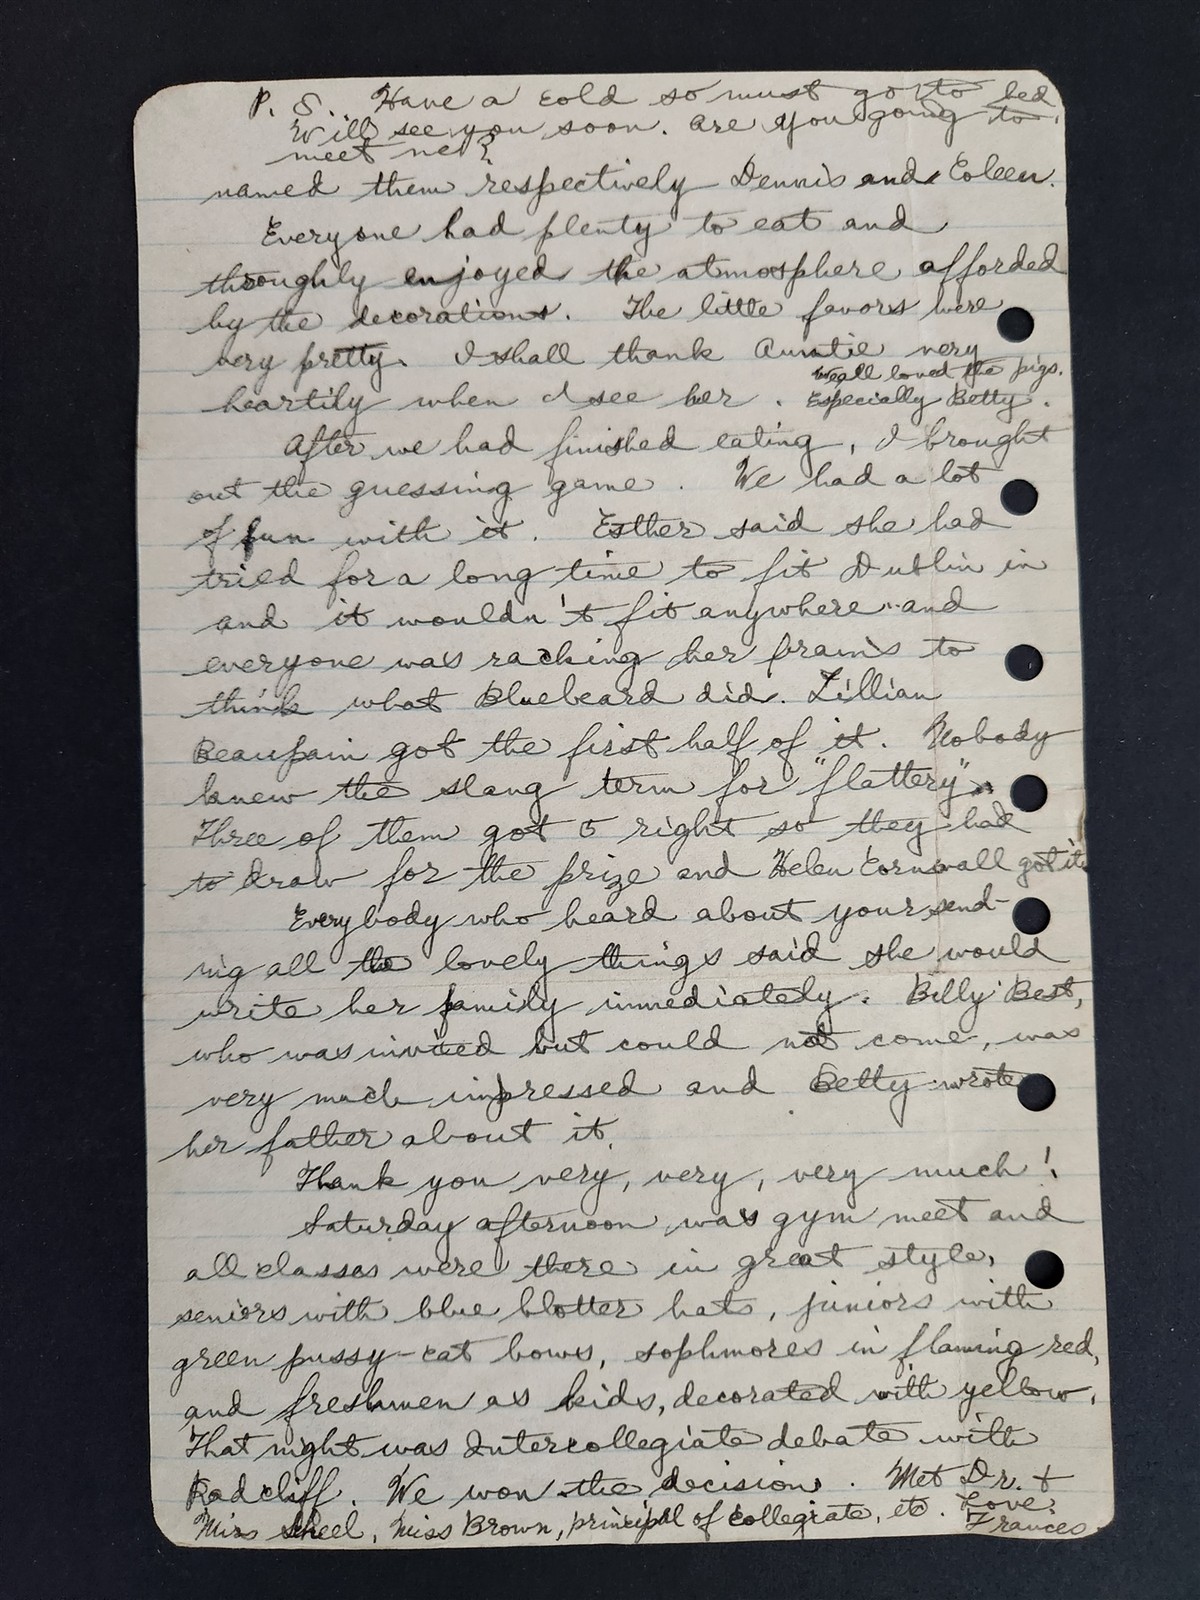 P. S. Have a cold so must go to bed.
Will see you soon. Are you going to
meet me?
named them respectively Dennis and Coleen.
Everyone had plenty to eat and
throughly enjoyed the atmosphere afforded
by the decorations. The little favors were
very pretty. I shall thank Auntie very
We all loved the pigs.
heartily when I see her. Especially Betty.
After we had finished eating, I brought
out the guessing game. We had a lot
of fun with it. Esther said she had
tried for a long time to fit Dublin in
and it wouldn't fit anywhere and
everyone was racking her brains to
think what Bluebeard did. Lillian
Beaupain got the first half of it. Nobody
knew the slang term for "flattery".
Three of them got 5 right so they had
to draw for the prize and Helen Cornwall got it.
Everybody who heard about your send-
ing all the lovely things said she would
write her family immediately. Billy Best,
who was invited but could not come, was
very much impressed and Betty wrote
her father about it.
Thank you very, very, very much!
Saturday afternoon was gym meet and
all classes were there in great style,
seniors with blue blotter hats, juniors with
green pussy-cat bows, sophmores in flaming red,
and freshmen as kids, decorated with yellow.
That night was Intercollegiate debate with
Radcliff. We won the decision. Met Dr. &
Miss Sheel, Miss Brown, principal of collegiate, etc. Love,
Frances